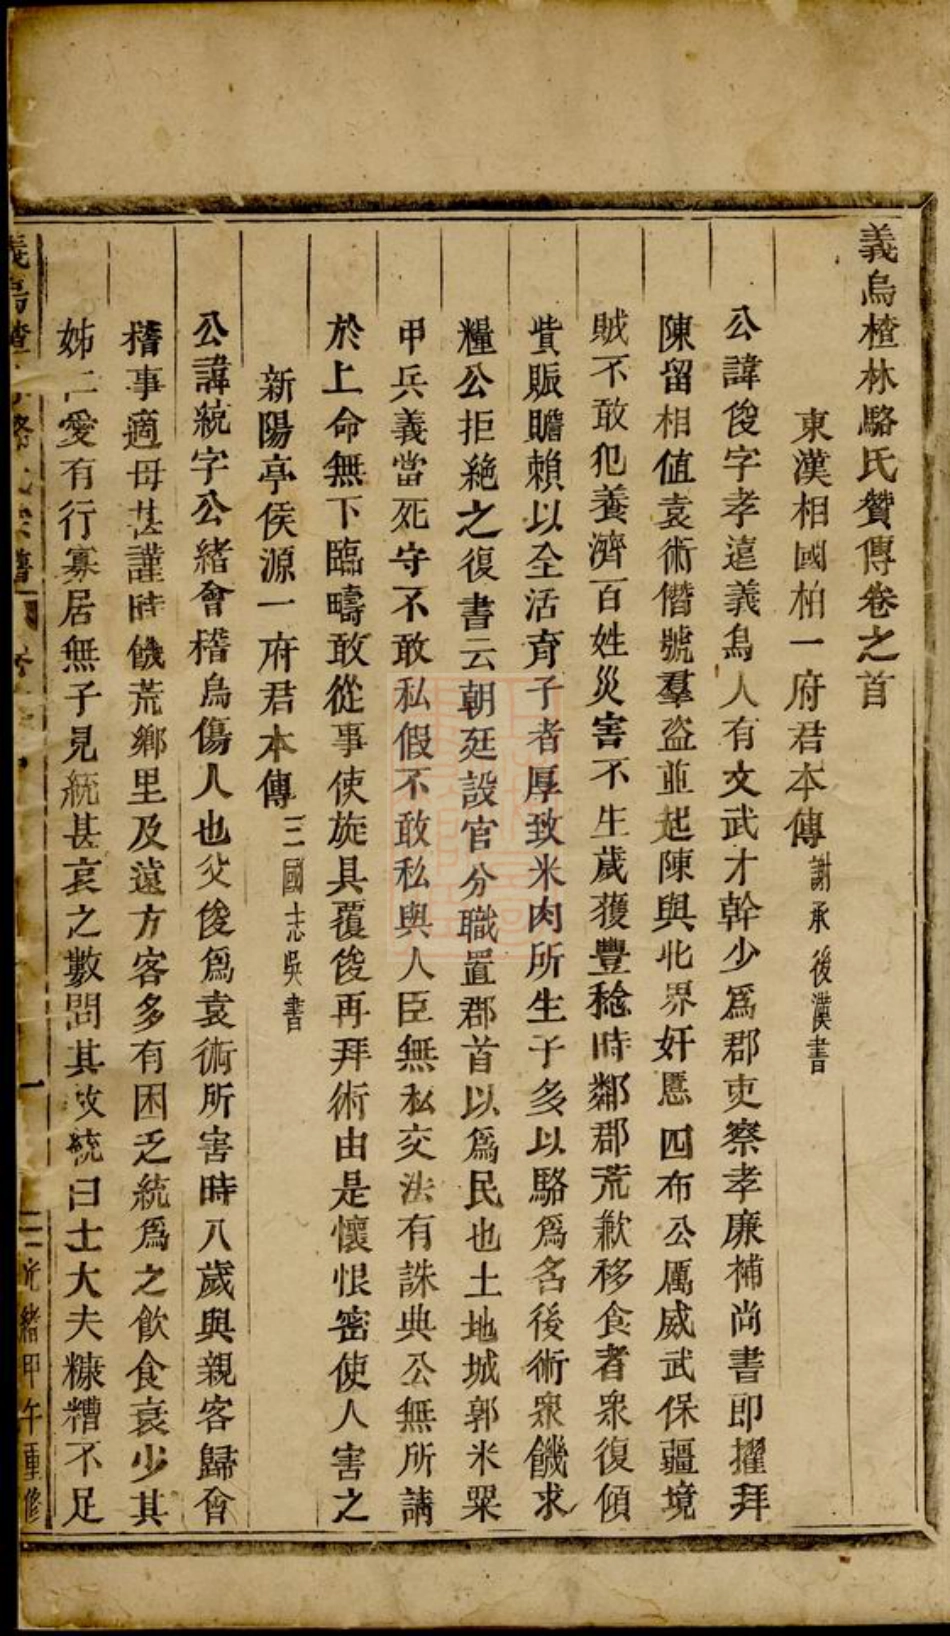 義烏楂林駱氏贊傳卷之首
東漢相國柏一府君本傳謝承後漢書
公諱俊字孝遠義烏人有文武才幹少爲郡吏察孝廉補尚書即擢拜
陳留相值袁術僭號羣盜並起陳與北界奸慝四布公厲威武保疆境
賊不敢犯養濟百姓災害不生歲獲豐稔時鄰郡荒歉移食者衆復傾
貲賑贍賴以全活育子者厚致米肉所生子多以駱爲名後術衆饑求
糧公拒絶之復書云朝廷設官分職置郡首以爲民也土地城郭米粟
甲兵義當死守不敢私假不敢私與人臣無私交法有誅典公無所請
於上命無下臨疇敢從事使旋具覆俊再拜術由是懷恨密使人害之
新陽亭侯源一府君本傳三國志吳書
公諱統字公緒會稽烏傷人也父俊爲袁術所害時八歲與親客歸會
稽事適母甚謹時饑荒鄉里及遠方客多有困乏統爲之飲食衰少其
姊仁愛有行寡居無子見統甚哀之數問其故統曰士大夫糠糟不足
光緒甲午重修